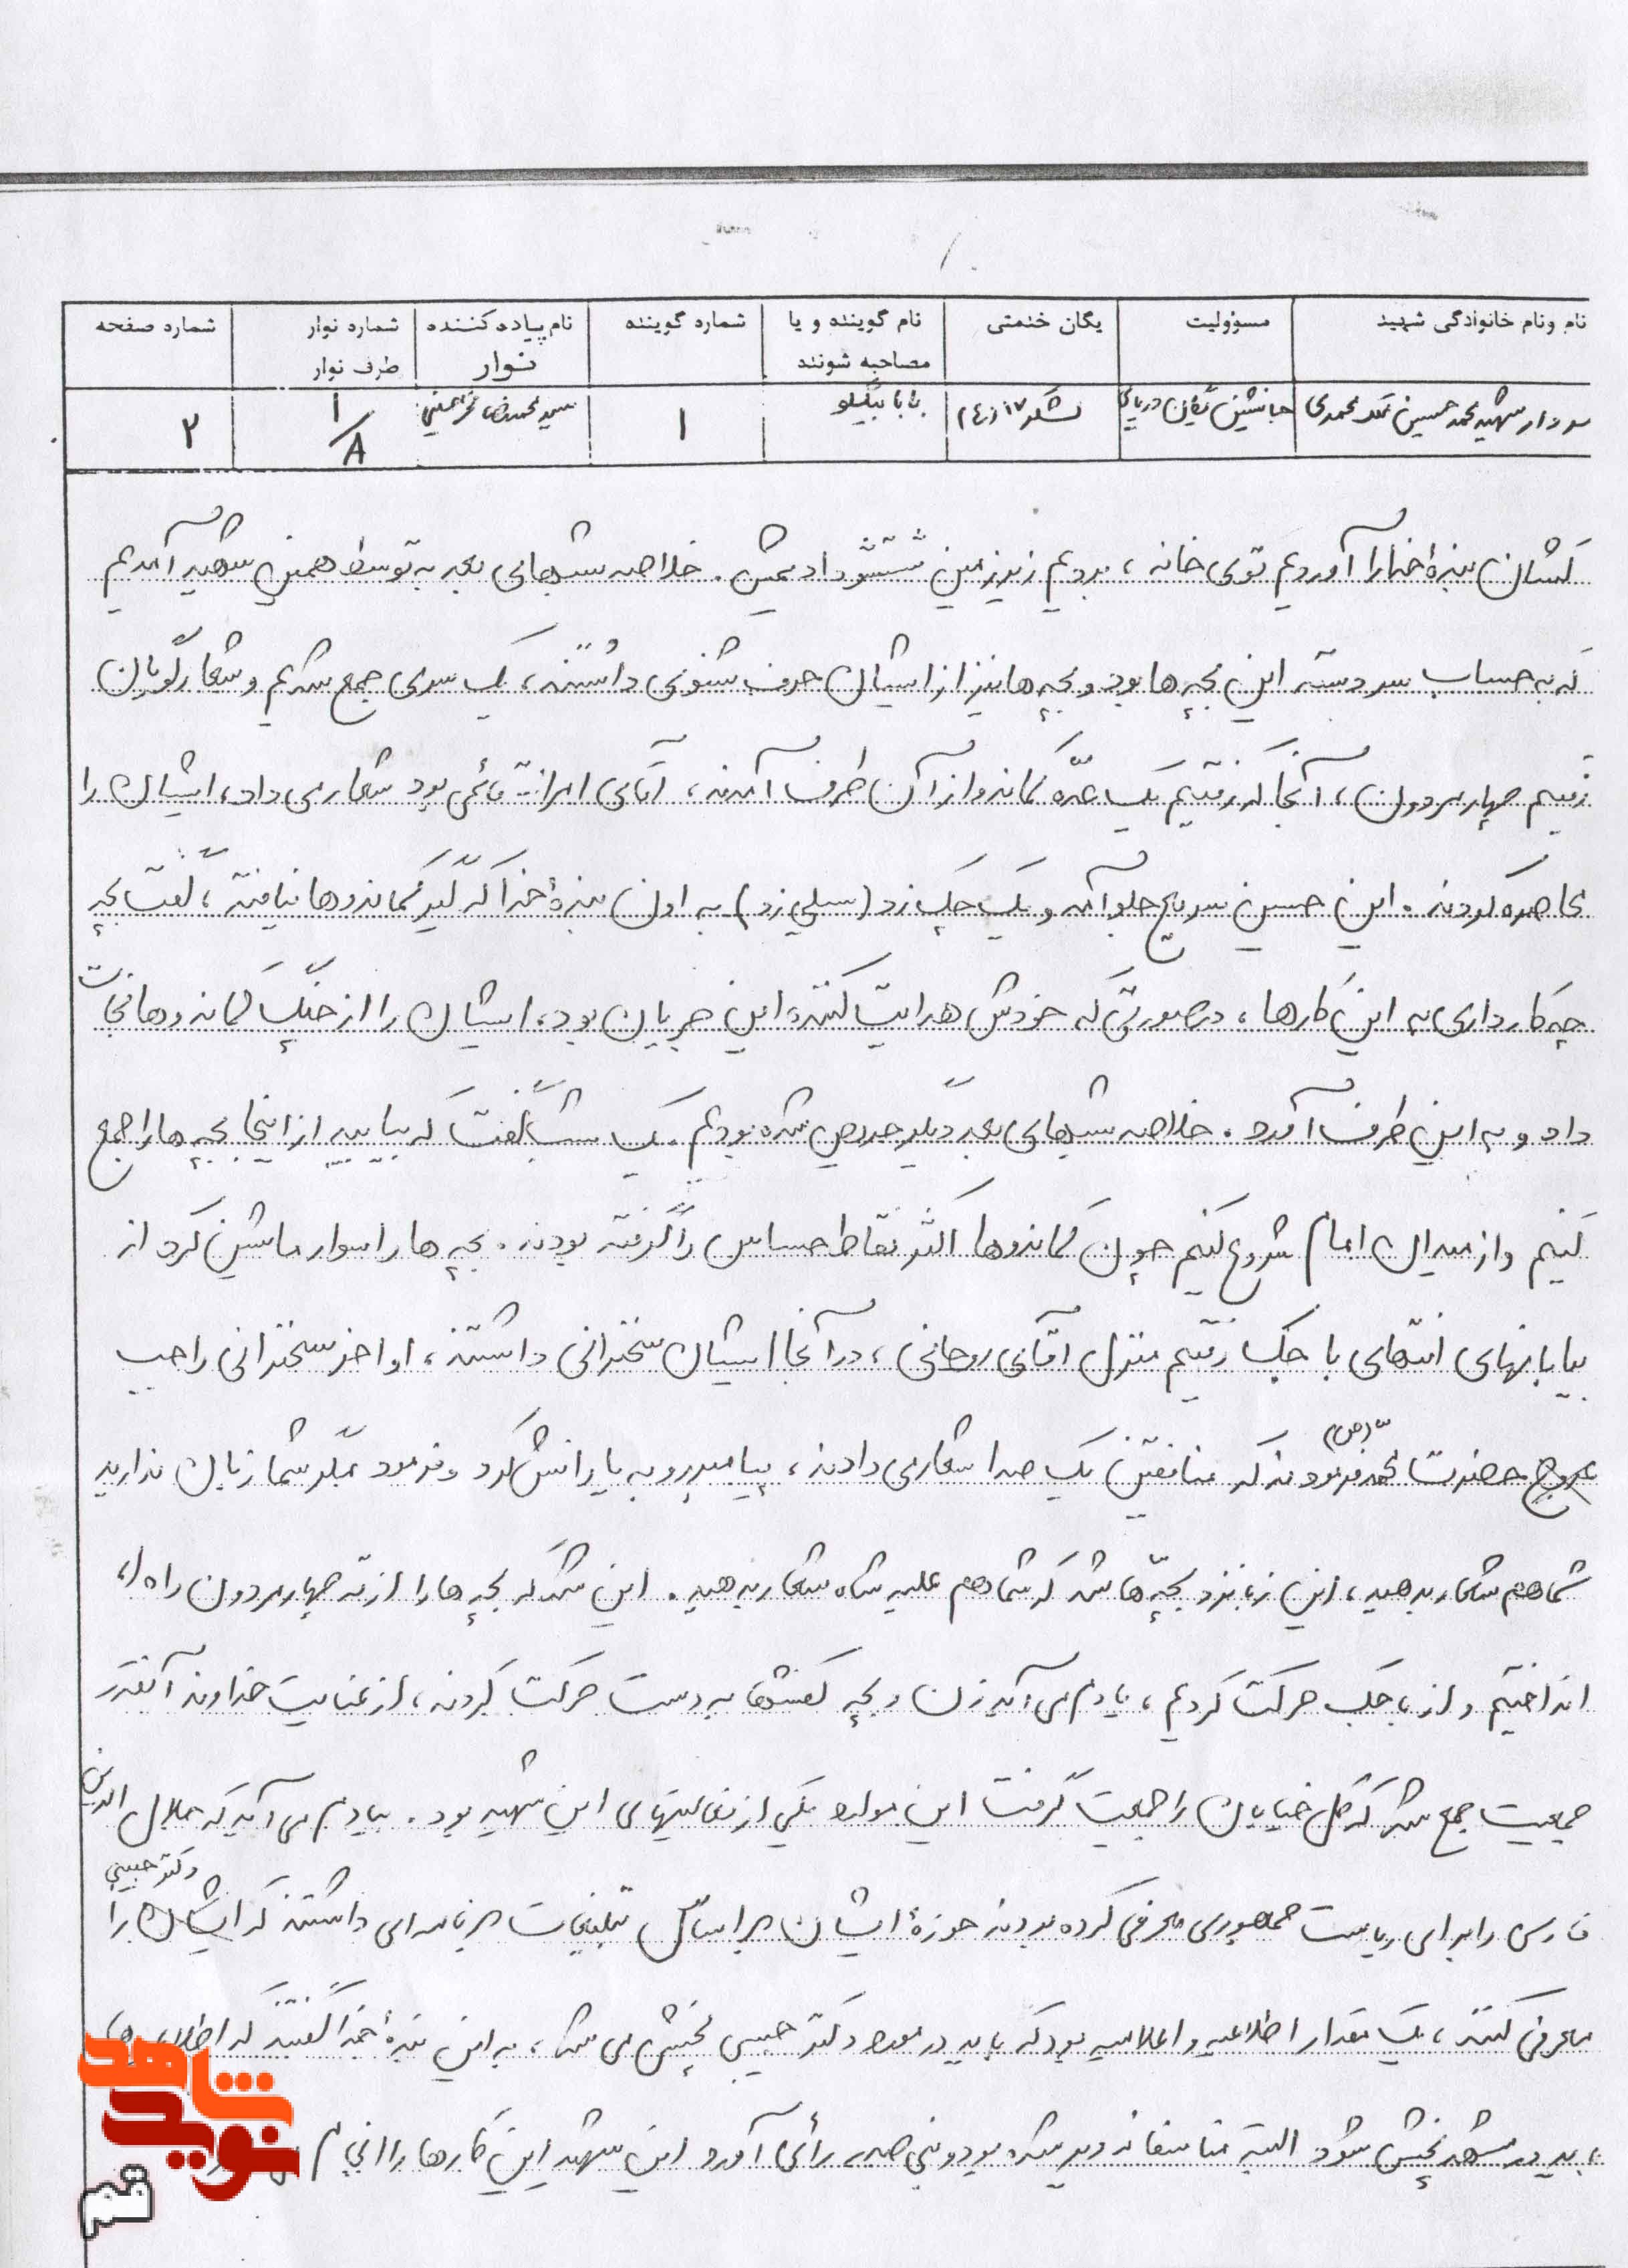 نام ونام خانوادگی شهید
مسوولیت
یگان خدمتی
نام گوینده و یا مصاحبه شونده
شماره گوینده
نام پیاده کننده نوار
شماره نوار طرف نوار
شماره صفحه
سردار شهید محمد حسین ملک محمدی
جانشین یگان دریایی
لشکر ۱۷
بابا بیگلو
۱
سید محمدرضا
۱/A
۲
کشان بنده خدا را آوردیم توی خانه ، بردیم زیرزمین شستشو دادیمش . خلاصه شبهای بعد به توسط همین شهید آمدیم
که به حساب سر دسته این بچه ها بود و بچه ها نیز از ایشان حرف شنوی داشتند ، یک سری جمع شدیم و شعار گویان
رفتیم چهار مردون ، آنجا که رفتیم یک عده کماندو از آن طرف آمدند ، آقای ایرانت قائمی بود شعار می داد ، ایشان را
محاصره کردند . این حسین سریع جلو آمد و یک چک زد (سیلی زد) به اون بنده خدا که گیر کماندوها نیافته ، گفت بچه
چه کار داری به این کارها ، در صورتی که خودش هدایت کننده این جریان بود ، ایشان را از چنگ کماندوها نجات
داد و به این طرف آورد . خلاصه شبهای بعد دیگر حریص شده بودیم . یک شب گفت که بیایید از اینجا بچه ها را جمع
کنیم و از میدان امام شروع کنیم چون کماندوها اکثر نقاط حساس را گرفته بودند . بچه ها را سوار ماشین کرد از
بیابانهای انتهای باجک رفتیم منزل آقای روحانی ، در آنجا ایشان سخنرانی داشتند ، اواخر سخنرانی راجب
حضرت محمد (ص) فرمودند که منافقین یک صدا شعار می دادند ، پیامبر رو به یارانش کرد و فرمود مگر شما زبان ندارید
شما هم شعار بدهید ، این زبانزد بچه ها شد که شما هم علیه شاه شعار بدهید . این شد که بچه ها را از ته چهار مردون راه
انداختیم و از باجک حرکت کردیم ، یادم می آید زن و بچه کفشها به دست حرکت کردند ، از عنایت خداوند آنقدر
جمعیت جمع شد که کل خیابان را جمعیت گرفت این موارد یکی از فعالیتهای این شهید بود . یادم می آید که جلال الدین
فارسی را برای ریاست جمهوری معرفی کرده بودند حوزه ایشان بر اساس تبلیغات برنامه ای داشتند که ایشان دکتر حبیبی را
معرفی کنند ، یک مقدار اطلاعیه و اعلامیه بود که باید در مورد دکتر حبیبی پخش می شد ، به این بنده خدا گفتند که اطلاعیه ها
باید در مشهد پخش شود البته متاسفانه دیر شده بود و بنی صدر رأی آورد این شهید این کارها را انجام
نوید شاهد
قم